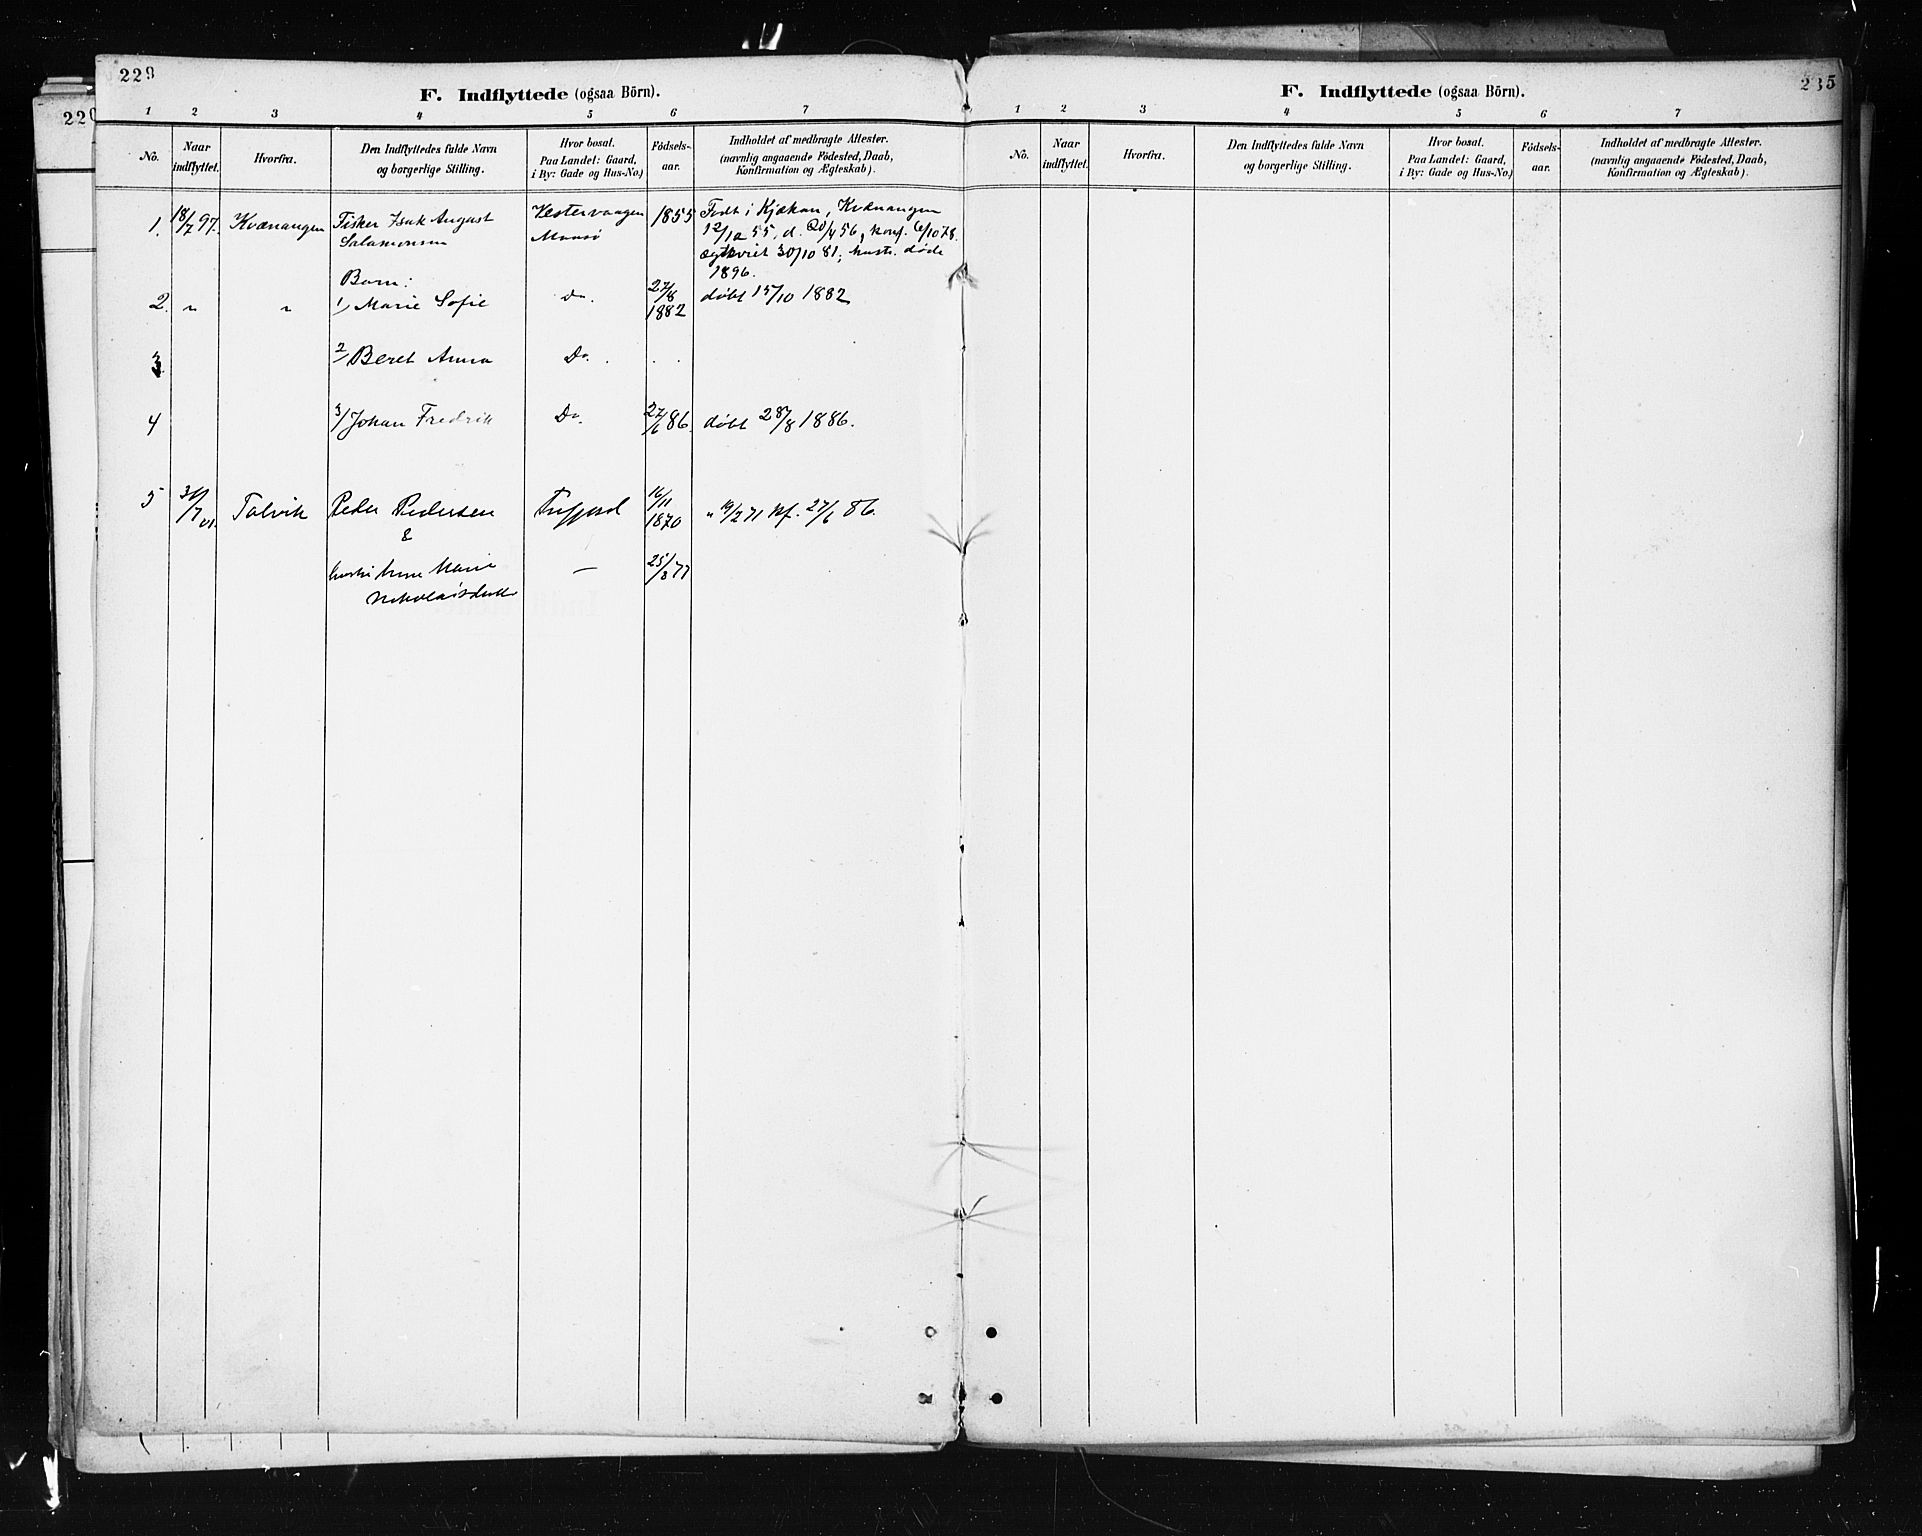 229
F. Indflyttede (ogsaa Börn).
1 2 3 4 5 6 7
No. Naar indflyttet. Hvorfra. Den Indflyttedes fulde Navn og borgerlige Stilling. Hvor bosat. Paa Landet: Gaard, i By: Gade og Hus-No.) Fødsels-aar. Indholdet af medbragte Attester. (navnlig angaaende Fødested, Daab, Konfirmation og Ægteskab).
1. 18/7 97. Kvænangen Fisker Isak August Vestervaagen 1855 Født i Kjækan, Kvænangen
Salamonsen Maasø 12/12 55, d. 20/4 56, konf. 6/10 78.
ægteviet 30/10 81; hustr. døde
1896.
Børn:
2. " " 1/ Marie Sofie Do. 27/8 1882 døbt 15/10 1882
3. 2/ Beret Anna Do.
4 3/ Johan Fredrik Do. 27/6 86. døbt 28/8 1886.
5 31/7 01. Talvik Peder Pedersen 16/11 1870 " 19/2 71 kf. 27/6 86.
&
hustru Anne Marie — 25/8 77
Nikolaisdatter
235
F. Indflyttede (ogsaa Börn).
1 2 3 4 5 6 7
No. Naar indflyttet. Hvorfra. Den Indflyttedes fulde Navn og borgerlige Stilling. Hvor bosat. Paa Landet: Gaard, i By: Gade og Hus-No.) Fødsels-aar. Indholdet af medbragte Attester. (navnlig angaaende Fødested, Daab, Konfirmation og Ægteskab).